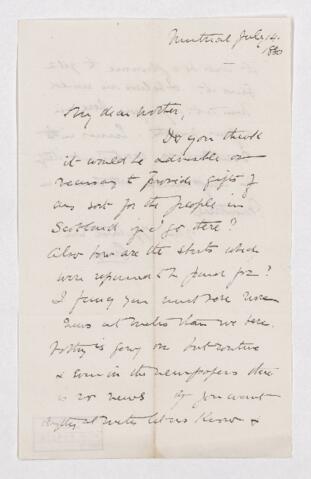 Montreal July 14.
1880
My dear Mother,
Do you think
it would be advisable or
necessary to provide gifts of
any sort for the people in
Scotland if I go there?
Also how are the shirts which
were
I fancy you must have more
news at Metis than we here.
Nothing is going on but routine
& even in the newspapers there
is no news If you want
anything at Metis let us know &